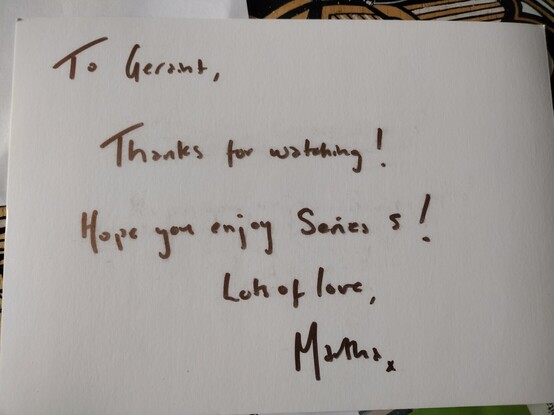 To Geraint,
Thanks for watching!
Hope you enjoy Series 5!
Lots of love,
Martha x